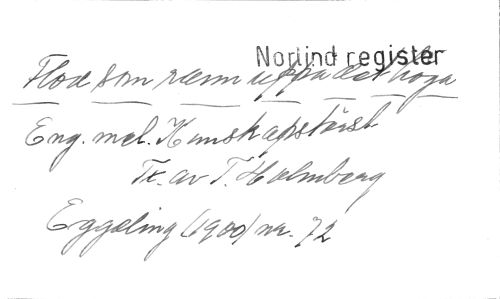 Norlind register
Flod som rann uppå det höga
Eng. mel. Kunskapstörst
Tx. av T. Holmberg
Eggeling (1900) nr. 72